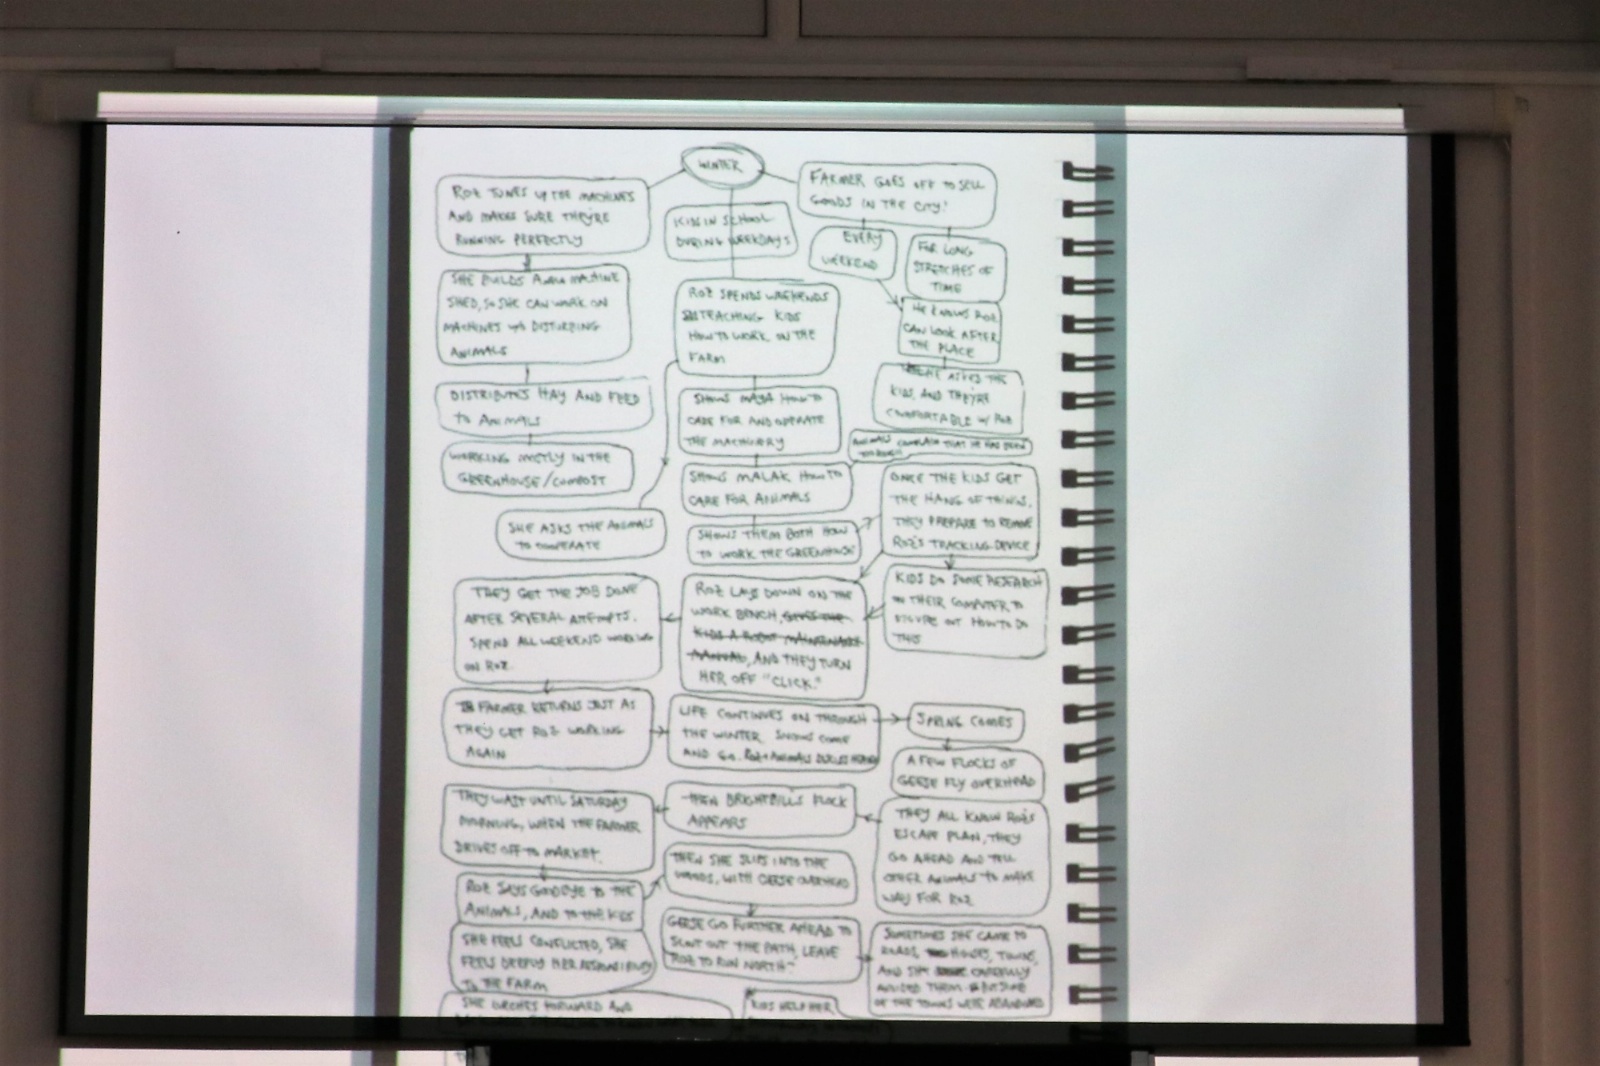 WINTER
ROZ TUNES UP THE MACHINES
AND MAKES SURE THEY'RE
RUNNING PERFECTLY
SHE BUILDS A MACHINE
SHED, SO SHE CAN WORK ON
MACHINES W/O DISTURBING
ANIMALS
DISTRIBUTES HAY AND FEED
TO ANIMALS
WORKING MOSTLY IN THE
GREENHOUSE/COMPOST
SHE ASKS THE ANIMALS
TO COOPERATE
KIDS IN SCHOOL
DURING WEEKDAYS
ROZ SPENDS WEEKENDS
TEACHING KIDS
HOW TO WORK ON THE
FARM
SHOWS MAYA HOW TO
CARE FOR AND OPERATE
THE MACHINERY
SHOWS MALAK HOW TO
CARE FOR ANIMALS
SHOWS THEM BOTH HOW
TO WORK THE GREENHOUSE
FARMER GOES OFF TO SELL
GOODS IN THE CITY!
EVERY
WEEKEND
FOR LONG
STRETCHES OF
TIME
HE KNOWS ROZ
CAN LOOK AFTER
THE PLACE
HE ASKS THE
KIDS, AND THEY'RE
COMFORTABLE W/ ROZ
ANIMALS COMPLAIN THAT HE HAS BEEN
ONCE THE KIDS GET
THE HANG OF THINGS,
THEY PREPARE TO REMOVE
ROZ'S TRACKING DEVICE
KIDS DO SOME RESEARCH
ON THEIR COMPUTER TO
FIGURE OUT HOW TO DO
THIS
ROZ LAYS DOWN ON THE
WORK BENCH, GIVES THE
KIDS A ROBOT MAINTENANCE
MANUAL, AND THEY TURN
HER OFF "CLICK."
THEY GET THE JOB DONE
AFTER SEVERAL ATTEMPTS.
SPEND ALL WEEKEND WORKING
ON ROZ.
FARMER RETURNS JUST AS
THEY GET ROZ WORKING
AGAIN
LIFE CONTINUES ON THROUGH
THE WINTER. SNOWS COME
AND GO. ROZ + ANIMALS DISCUSS
SPRING COMES
A FEW FLOCKS OF
GEESE FLY OVERHEAD
THEY ALL KNOW ROZ'S
ESCAPE PLAN, THEY
GO AHEAD AND TELL
OTHER ANIMALS TO MAKE
WAY FOR ROZ
THEN BRIGHTBILL'S FLOCK
APPEARS
THEY WAIT UNTIL SATURDAY
MORNING, WHEN THE FARMER
DRIVES OFF TO MARKET.
ROZ SAYS GOODBYE TO THE
ANIMALS, AND TO THE KIDS
SHE FEELS CONFLICTED, SHE
FEELS DEEPLY HER RESPONSIBILITY
TO THE FARM
THEN SHE SLIPS INTO THE
WOODS, WITH GEESE OVERHEAD
GEESE GO FURTHER AHEAD TO
SCOUT OUT THE PATH, LEAVE
ROZ TO RUN NORTH
SOMETIMES SHE CAME TO
ROADS, HOUSES, TOWNS,
AND SHE CAREFULLY
AVOIDED THEM
OF THE TOWNS WERE ABANDONED
SHE LURCHES FORWARD AND
KIDS HELP HER